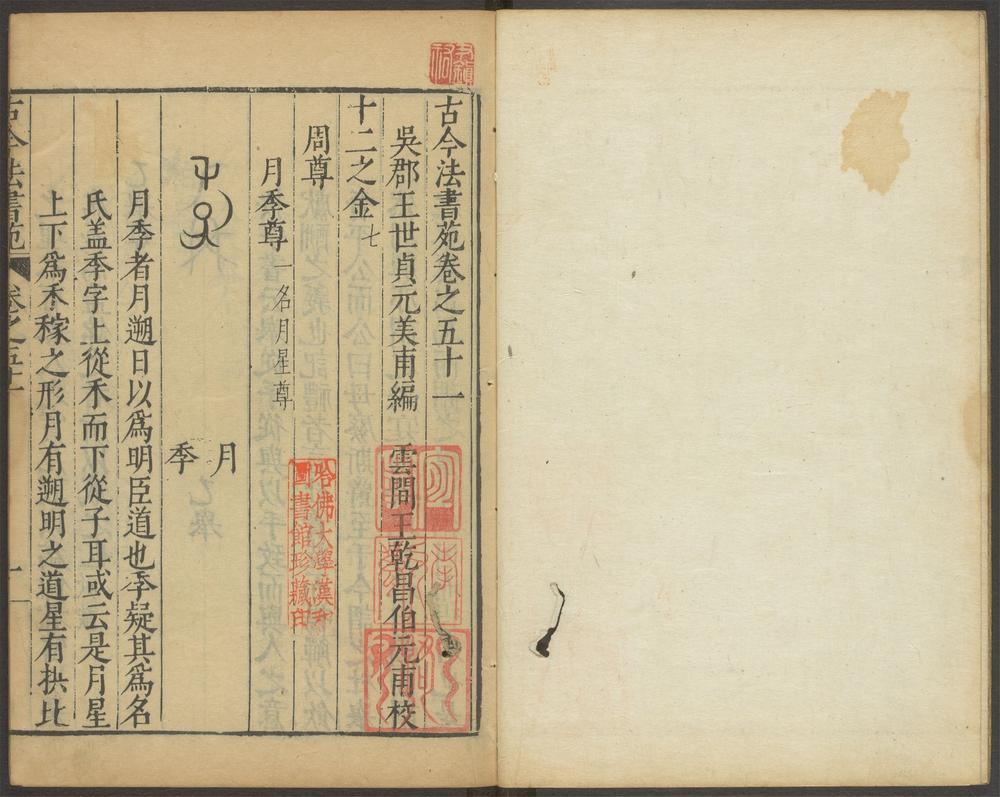 古今法書苑卷之五十一
吳郡王世貞元美甫編　雲間王乾昌伯元甫校
十二之金七
周尊
月季尊一名月星尊
月
季
月季者月遡日以爲明臣道也季疑其爲名
氏盖季字上從禾而下從子耳或云是月星
上下爲禾稼之形月有遡明之道星有拱比
古今法書苑
卷之五十一
一
哈佛大學漢和
圖書館珍藏印